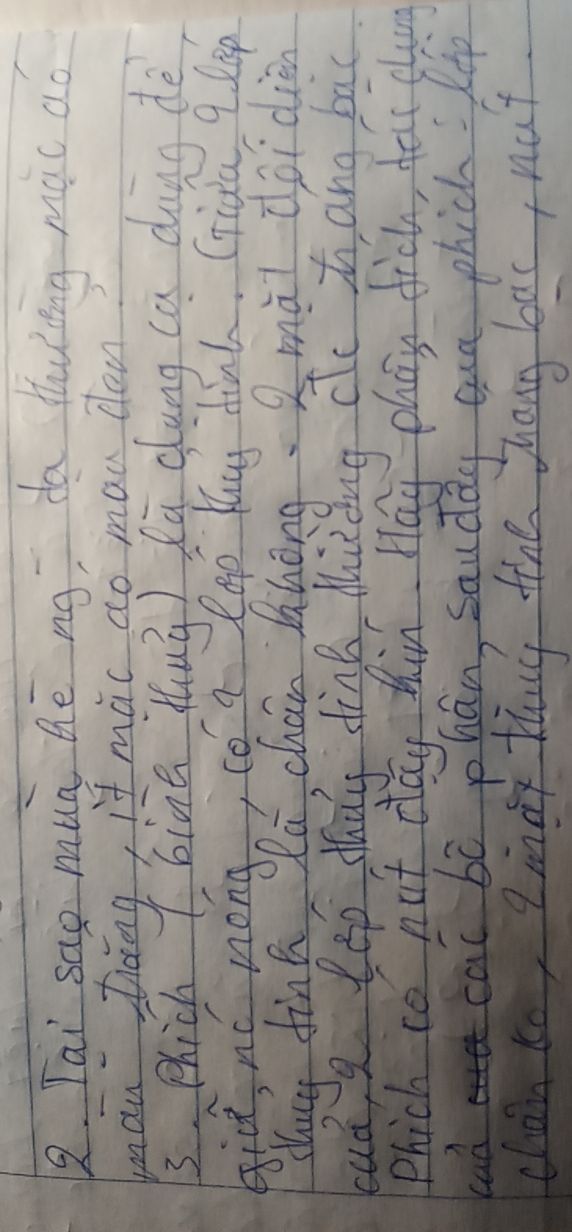 2. Tại sao mùa hè ng` ta thường mặc áo
màu trắng, ít mặc áo màu đen
3. Phích (bình thủy) là dụng cụ dùng để
giữ nc nóng, có 2 lớp thủy tinh. Giữa 2 lớp
thủy tinh là chân không. 2 mặt đối diện
của 2 lớp thủy tinh thường đc tráng bạc.
Phích có nút đậy kín. Hãy phân tích tác dụng
của các bộ phận sau đây của phích: lớp
chân ko, 2 mặt thủy tinh tráng bạc, nút.